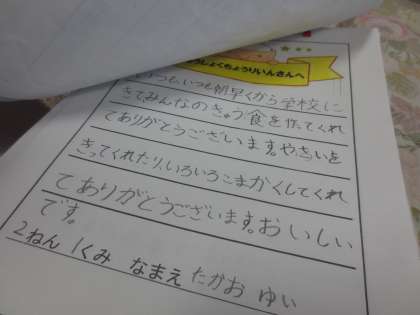 うしょくちょうりいんさんへ
いつも、いつも朝早くから学校に
きてみんなのきゅう食を作ってくれ
てありがとうございます。やさいを
きってくれたり、いろいろこまかくしてくれ
てありがとうございます。おいしい
です。
2ねん 1くみ なまえ たかお ゆい